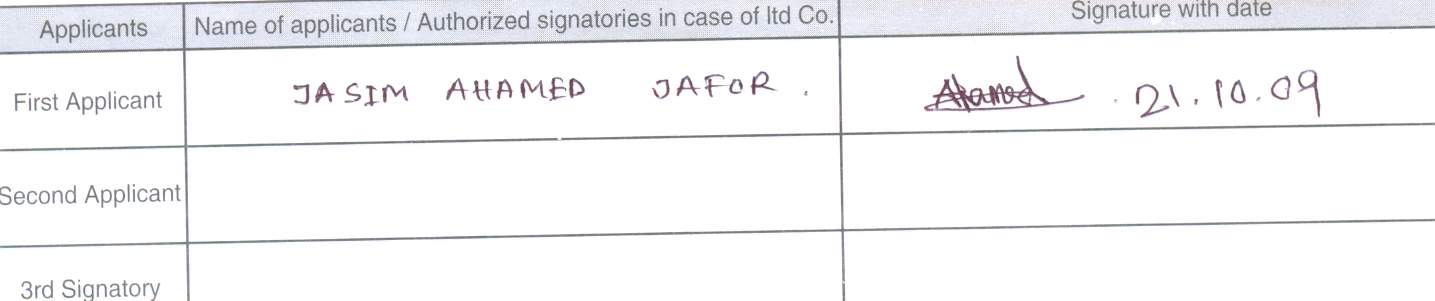 Applicants Name of applicants / Authorized signatories in case of ltd Co. Signature with date
First Applicant JASIM AHAMED JAFOR . Ahamed . 21.10.09
Second Applicant
3rd Signatory